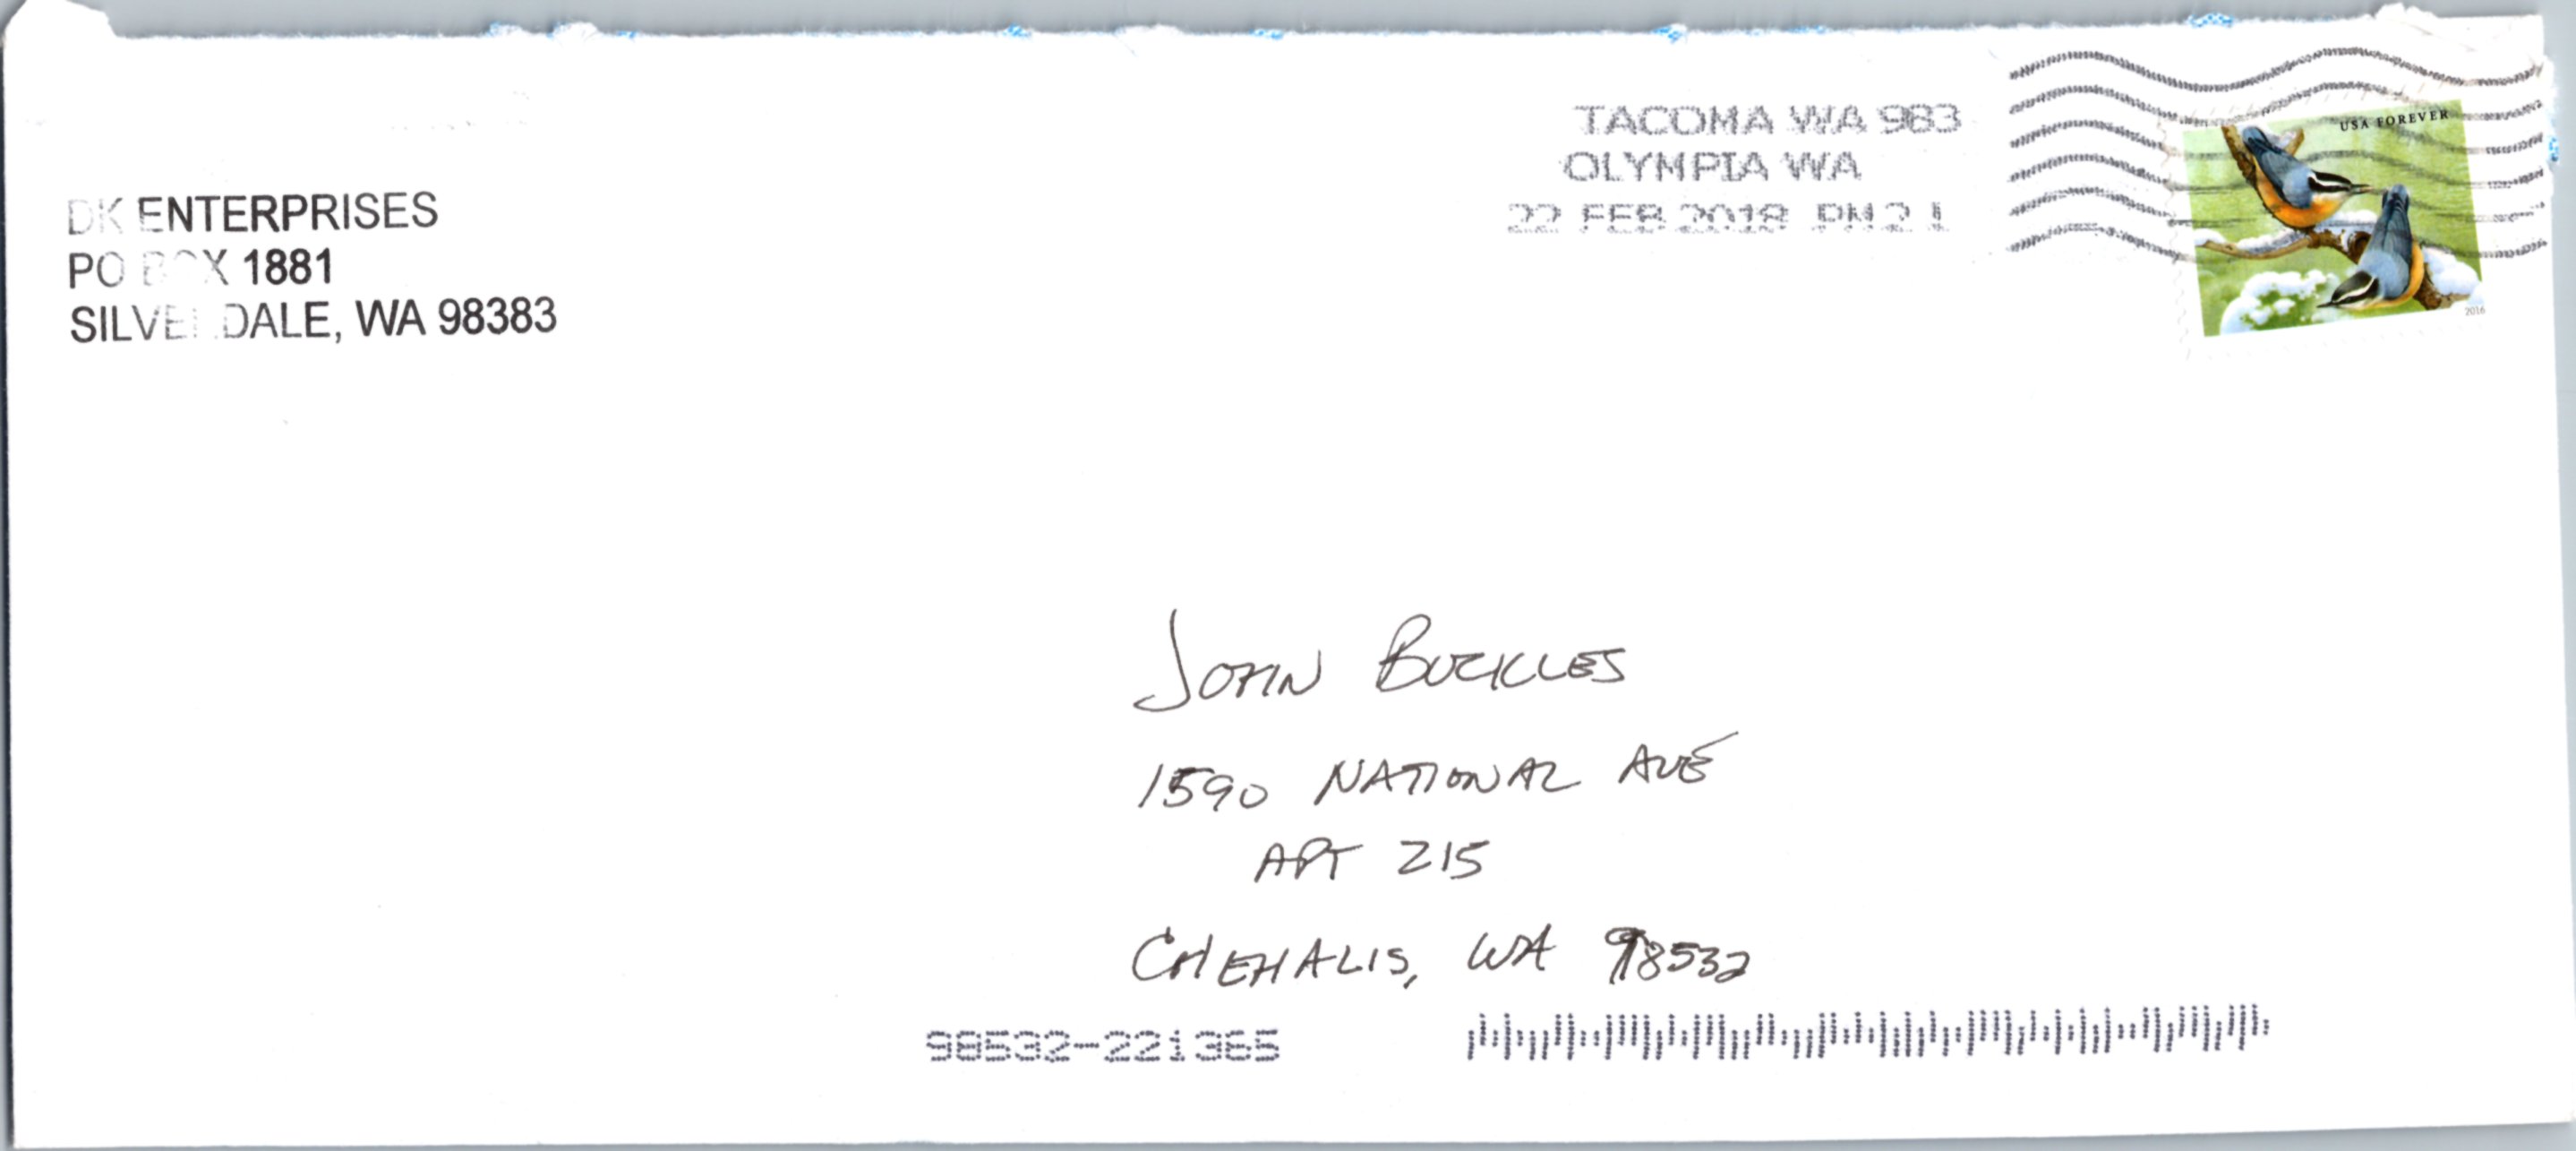 DK ENTERPRISES
PO BOX 1881
SILVERDALE, WA 98383
TACOMA WA 983
OLYMPIA WA
22 FEB 2018 PM 2 L
USA FOREVER
2016
JOHN BUCKLES
1590 NATIONAL AVE
APT 215
CHEHALIS, WA 98532
98532-221365